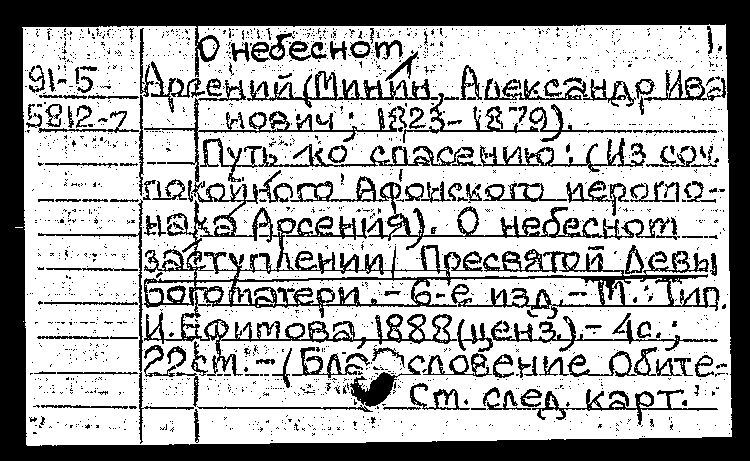 О небесном 1.
91-5 Арсений (Минин, Александр Ива
5812-7 нович; 1823-1879).
Путь ко спасению: (Из соч.
покойного Афонского иеромо-
наха Арсения). О небесном
заступлении Пресвятой Девы
Богоматери. - 6-е изд. - М.: Тип.
И. Ефимова, 1888 (ценз.). - 4с.;
22см. - (Благословение Обите-
См. след. карт.